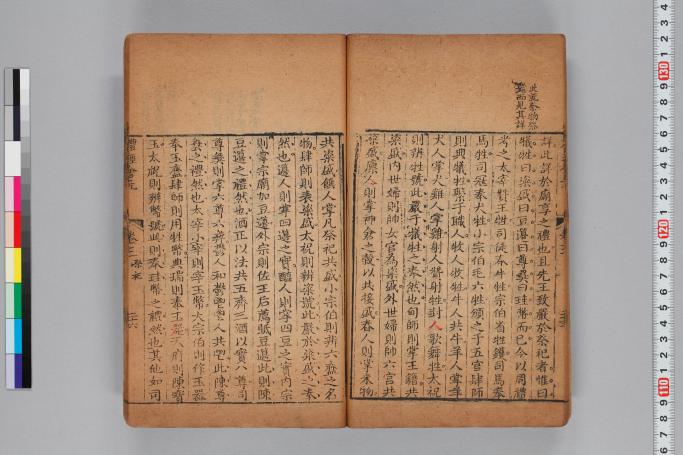 詳此詳於廟享之禮也且先王致嚴於祭祀者惟曰
犧牲曰粢盛曰豆籩曰尊彝曰珪幣而已今以周禮
考之太宰贊王牲司徒奉牛牲宗伯省牲鑊司馬奉
馬牲司寇奉犬牲小宗伯毛六牲頒之于五官肆師
則典犧牲繫于職人牧人牧牲牛人共牛羊人掌羊
犬人掌犬雞人掌雞射人贊射牲封人歌舞牲太祝
則辨牲號此嚴于犧牲之奉然也甸師則掌王籍共
粢盛内世婦則帥女官為粢盛外世婦則帥六宫共
粢盛廪人則掌神倉之藏以共接盛舂人則掌米物
共粢盛饎人掌凡祭祀共盛小宗伯則辨六齍之名
物肆師則表粢盛太祝則辨粢號此嚴於粢盛之奉
然也籩人則掌四籩之實醢人則掌四豆之實内宗
則掌宗廟加豆籩外宗則佐王后薦豆籩此則陳
豆籩之禮然也酒正以法共五齊三酒以實八尊司
尊彝則掌六尊六彝鬱人和鬱鬯人共秬此陳尊
彝之禮然也太宰小宰則宰玉幣大宗伯則作玉器
奉玉齍肆師則用牲幣典瑞則奉玉器天府則陳寶
玉太祝則辨幣號此則奉珪幣之禮然也其他如司
此嚴奉物祭
其詳